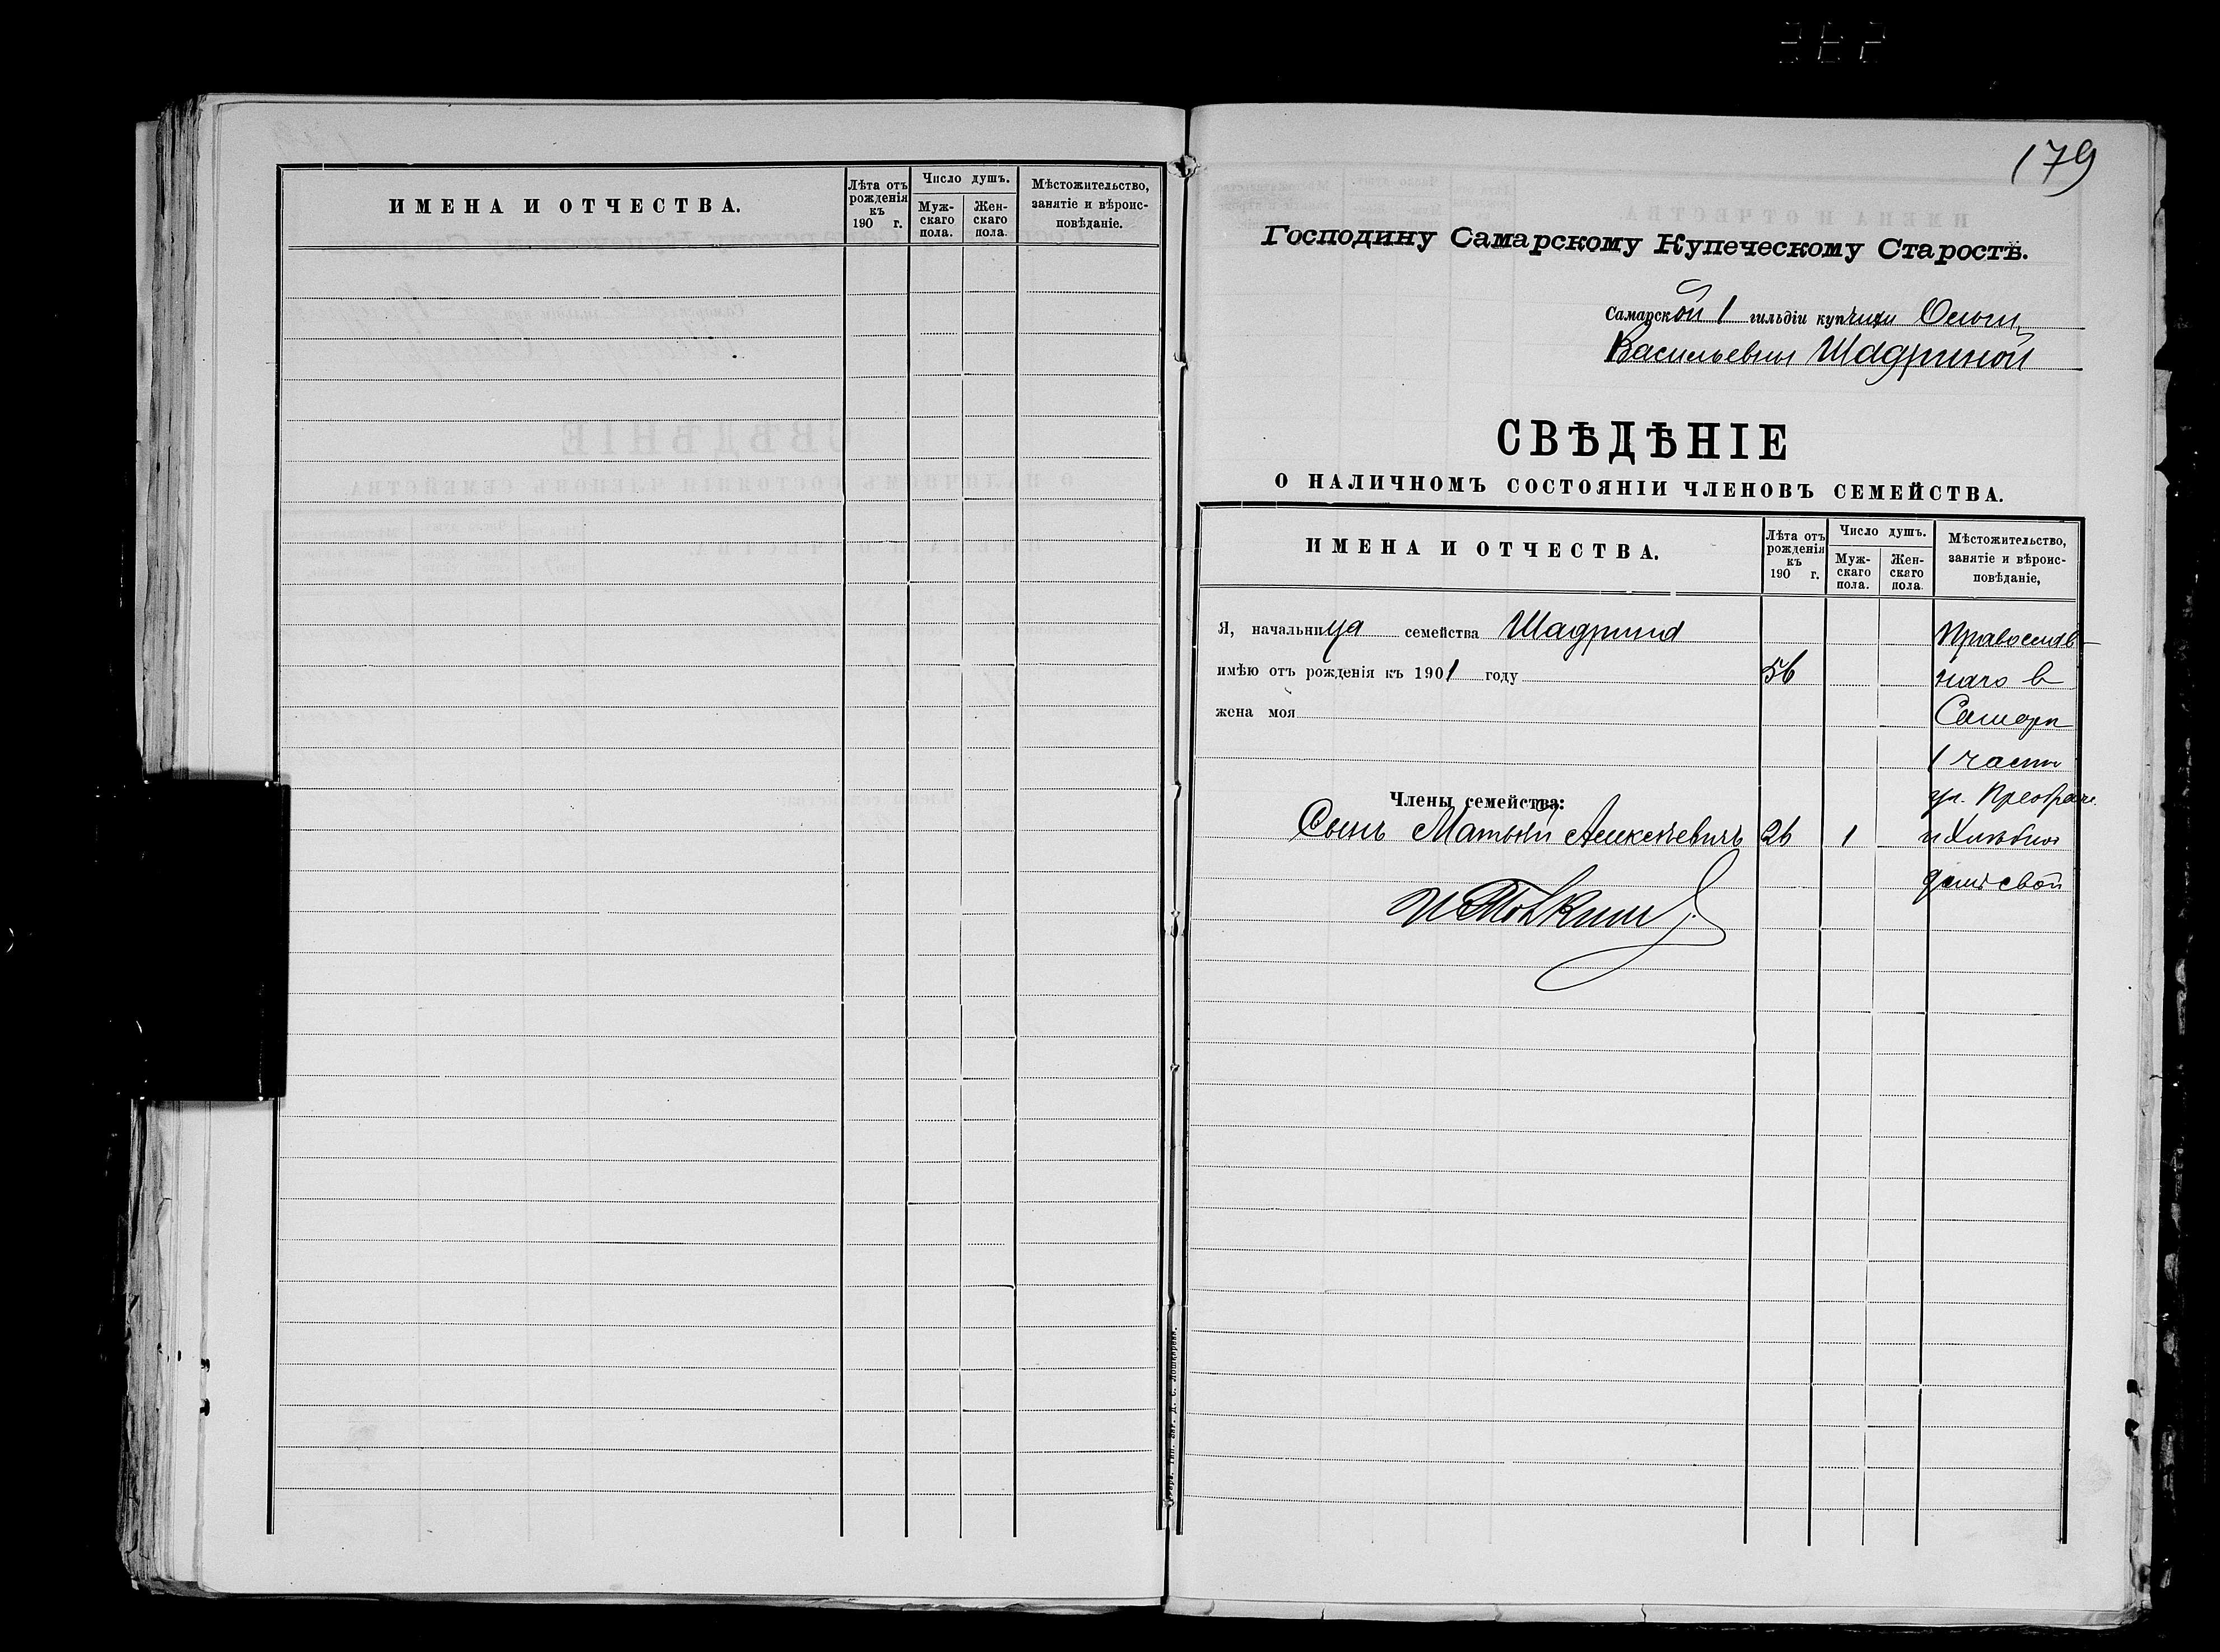 ИМЕНА И ОТЧЕСТВА.
Лѣта отъ рожденія къ 190 г.
Число душъ.
Мужскаго пола.
Женскаго пола.
Мѣстожительство, занятіе и вѣроисповѣданіе.
179
Господину Самарскому Купеческому Старостѣ.
Самарской 1 гильдіи купчихи
Васильевны Шадриной
СВѢДѢНІЕ
О НАЛИЧНОМЪ СОСТОЯНІИ ЧЛЕНОВЪ СЕМЕЙСТВА.
ИМЕНА И ОТЧЕСТВА.
Лѣта отъ рожденія къ 190 г.
Число душъ.
Мужскаго пола.
Женскаго пола.
Мѣстожительство, занятіе и вѣроисповѣданіе,
Я, начальница семейства Шадрина Православ-
имѣю отъ рожденія къ 1901 году 56 наго в
жена моя Самарѣ
1 части
Члены семейства: ул. Преображ.
Сынъ Матвѣй Алексѣевичъ 26 1 и Хлѣбной
домъ свой